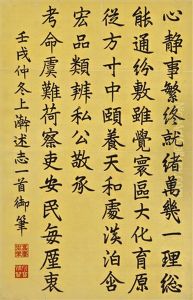 心靜事繁終就緒萬幾一理總
能通紛敷雖覺寰區大化育原
從方寸中頤養天和處淡泊僉
宏品類辨私公敬承
考命虞難荷察吏安民每厪衷
壬戌仲冬上澣述志一首御筆